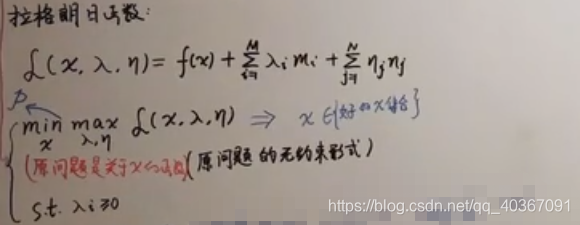 拉格朗日函数:
L(x,λ,η) = f(x) + ∑_{i=1}^{M} λ_i m_i + ∑_{j=1}^{N} η_j n_j
P
min_x max_{λ,η} L(x,λ,η) ⇒ x∈{好的x集合}
(原问题是关于x的函数)(原问题的无约束形式)
s.t. λ_i ≥ 0
https://blog.csdn.net/qq_40367091